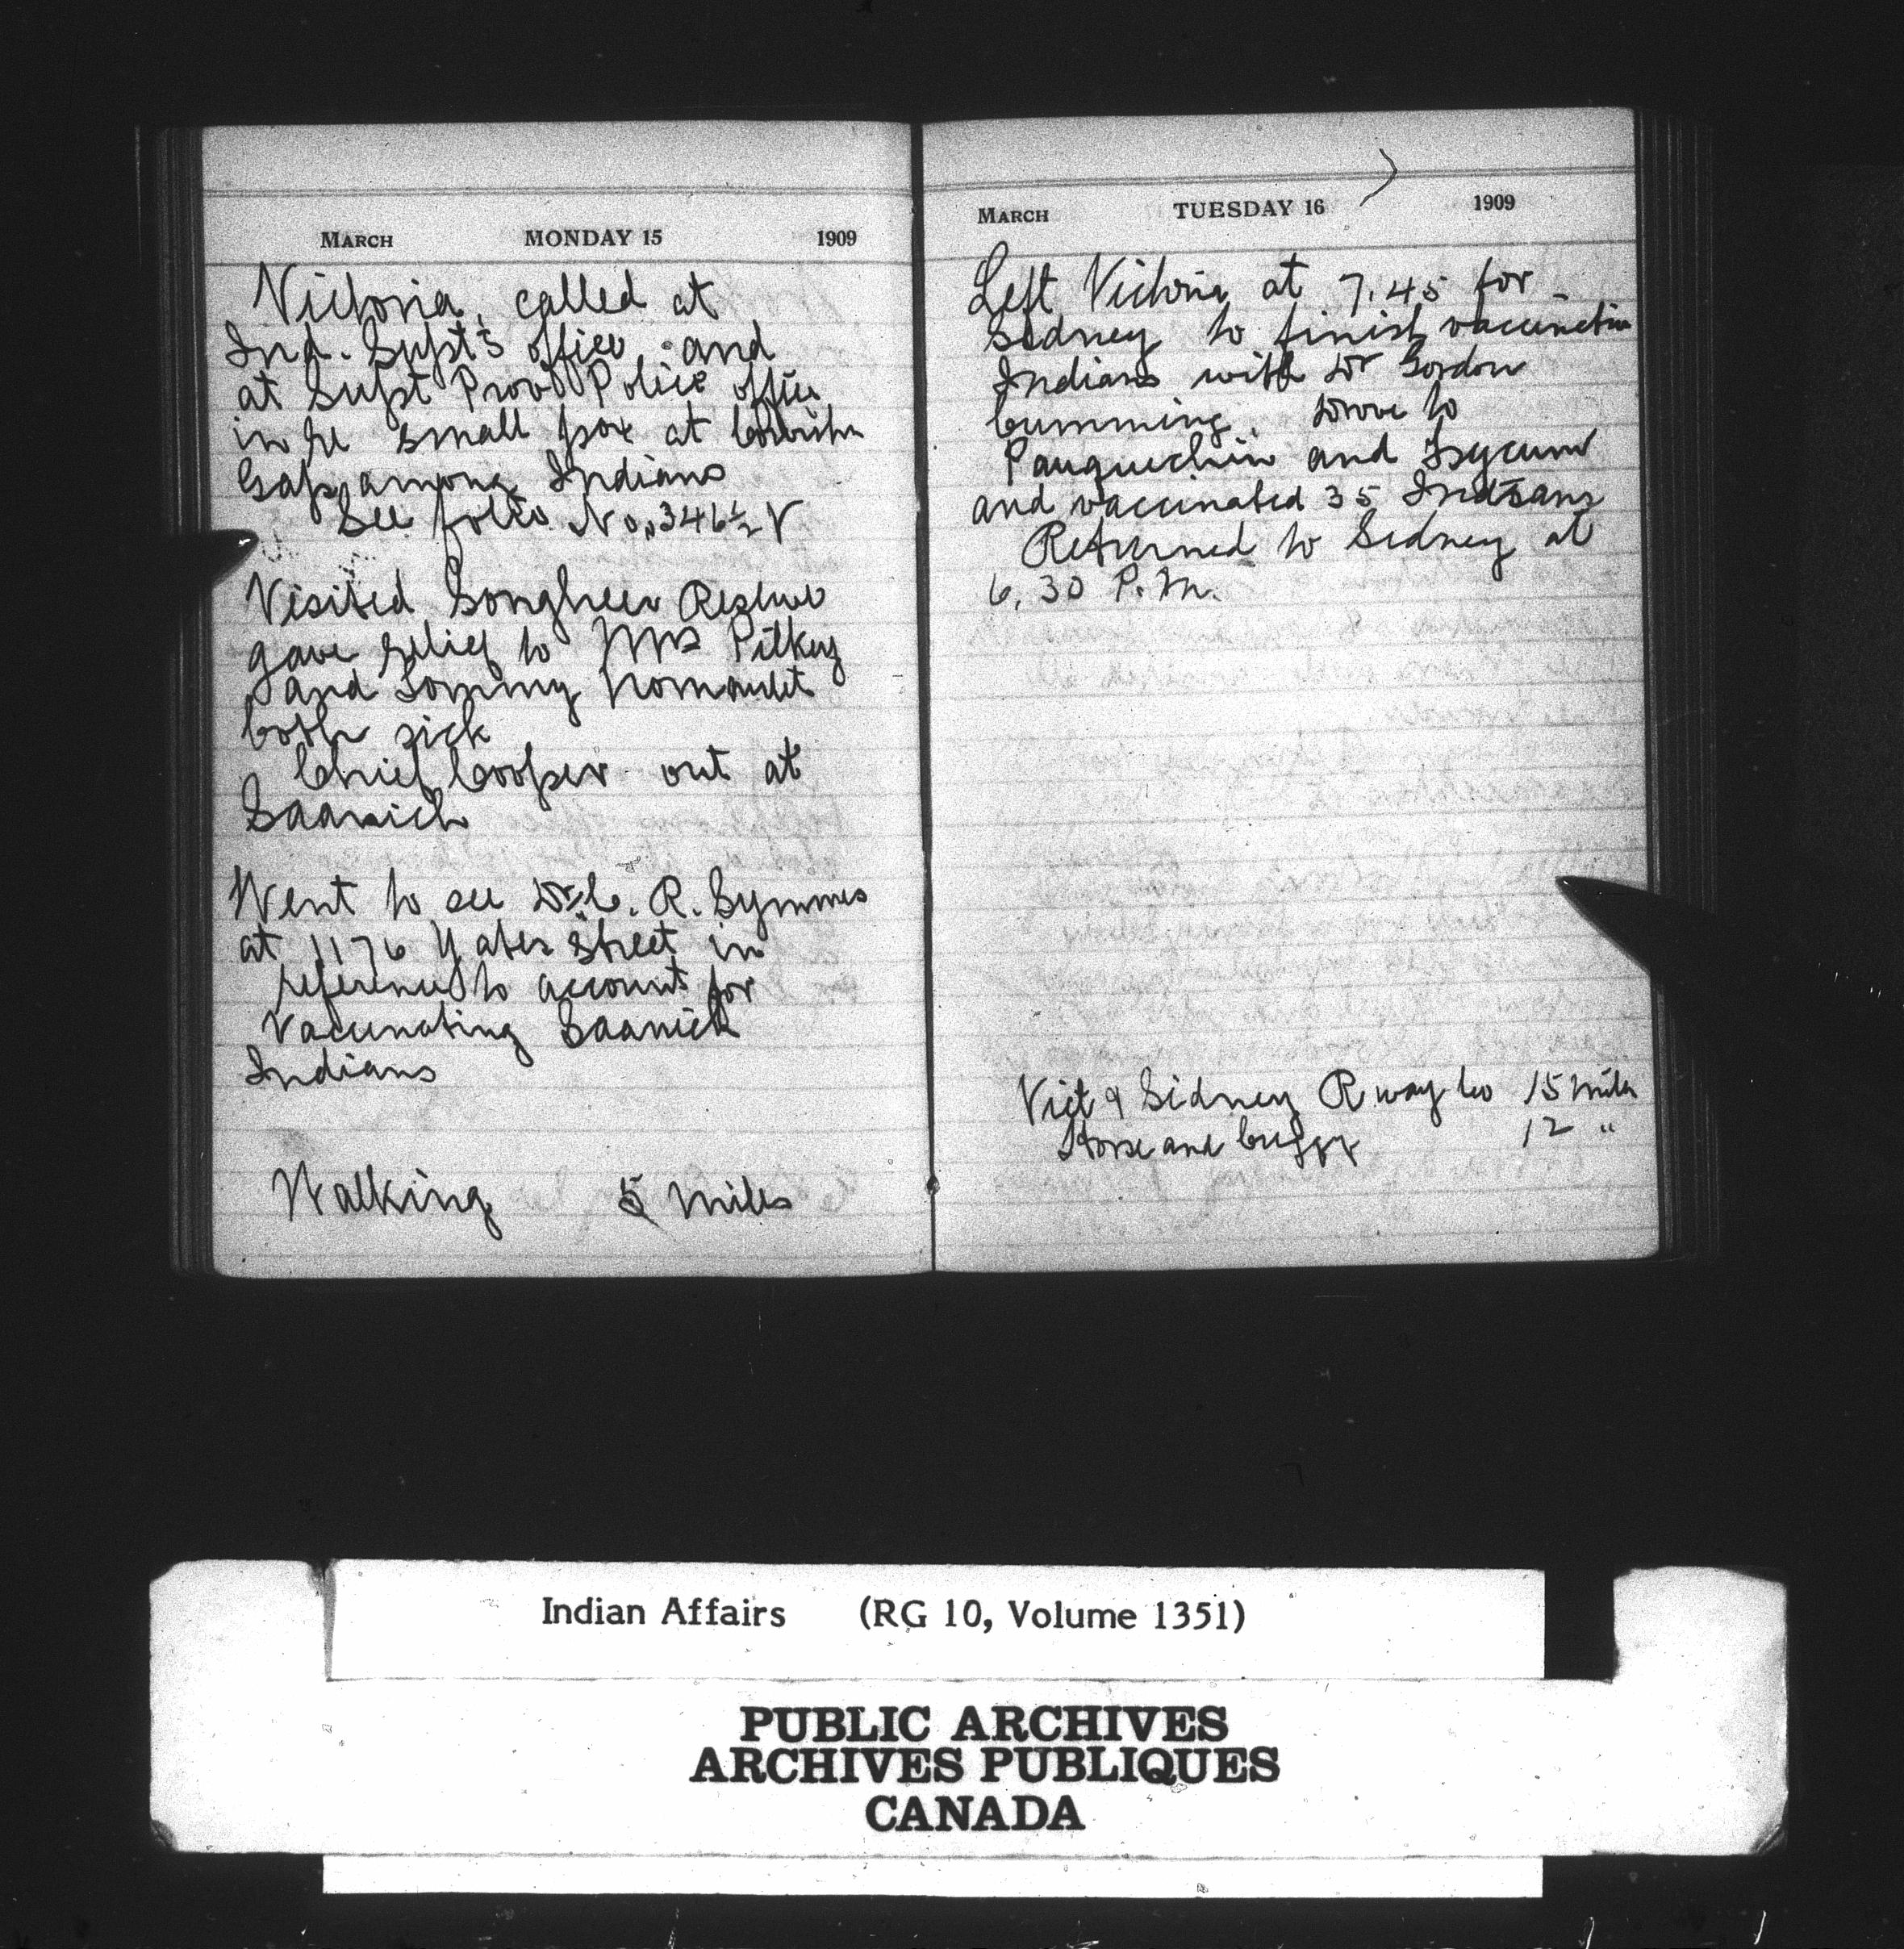 MARCH MONDAY 15 1909
Victoria, called at
Ind. Supt's office, and
at Supt Provl Police office
in re small pox at Cowichan
Gap among Indians
See folio No. 346½ V
Visited Songhees Reserve
gave relief to Mrs Pilkey
and Tommy
both sick
Chief Cooper out at
Saanich
Went to see Dr. C. R. Symmes
at 1176 Yates Street in
reference to account for
vaccinating Saanich
Indians
Walking 5 miles
MARCH TUESDAY 16 1909
Left Victoria at 7.45 for
Sidney to finish vaccinatin
Indians with Dr Gordon
Cumming. Drove to
Pauquechin and Tsycum
and vaccinated 35 Indians
Returned to Sidney at
6.30 P.M.
Vict & Sidney Rway to 15 miles
Horse and buggy 12 "
Indian Affairs (RG 10, Volume 1351)
PUBLIC ARCHIVES
ARCHIVES PUBLIQUES
CANADA